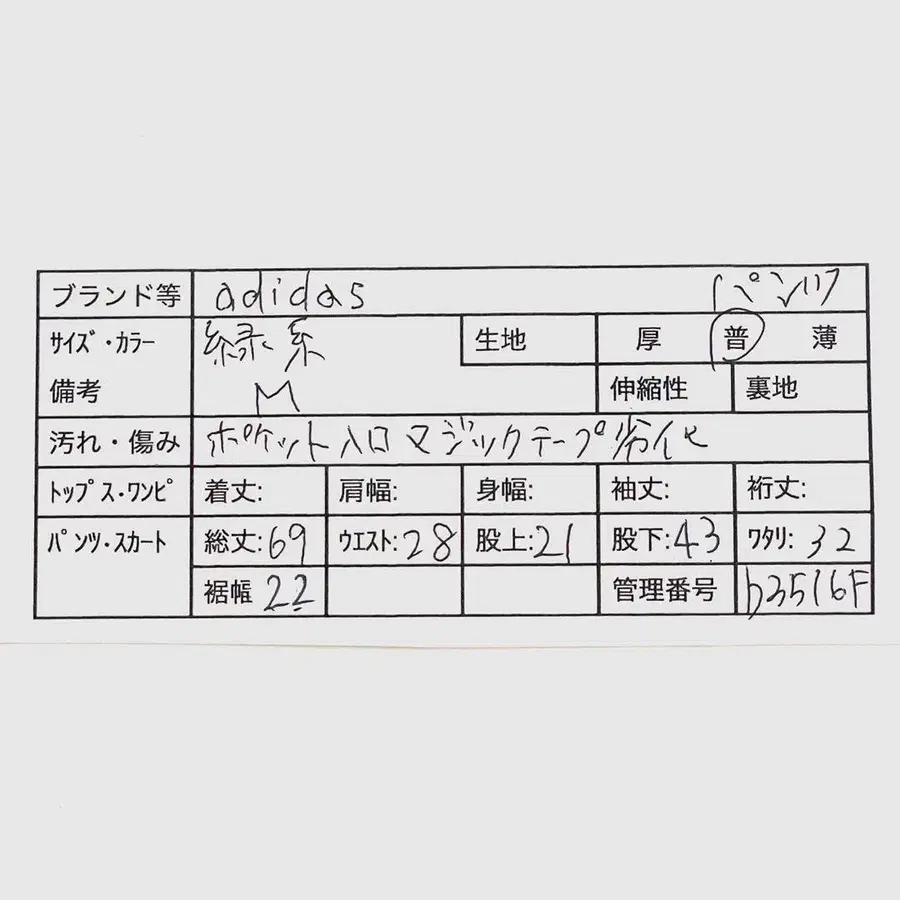 ブランド等 adidas パンツ
サイズ・カラー 緑系 生地 厚 普 薄
備考 M 伸縮性 裏地
汚れ・傷み ポケット入口マジックテープ劣化
トップス・ワンピ 着丈: 肩幅: 身幅: 袖丈: 裄丈:
パンツ・スカート 総丈:69 ウエスト:28 股上:21 股下:43 ワタリ:32
裾幅 22 管理番号 b3516F